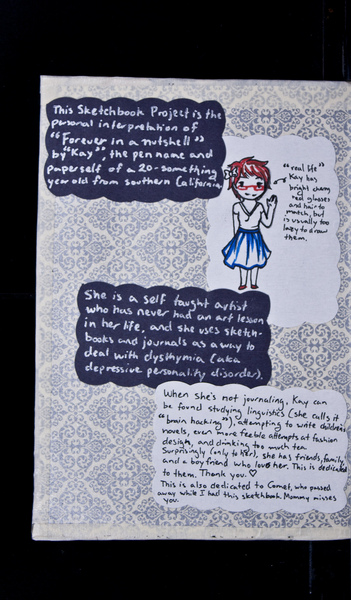 This Sketchbook Project is the
personal interpretation of
"Forever in a nutshell"
by "Kay", the pen name and
paperself of a 20-something
year old from southern California.
"real life"
Kay has
bright cherry
red glasses
and hair to
match, but
is usually too
lazy to draw
them.
She is a self taught artist
who has never had an art lesson
in her life, and she uses sketch-
books and journals as a way to
deal with dysthymia (aka
depressive personality disorder).
When she's not journaling, Kay can
be found studying linguistics (she calls it
"brain hacking"), attempting to write children's
novels, even more feeble attempts at fashion
design, and drinking too much tea.
Surprisingly (only to her), she has friends, family,
and a boyfriend who love her. This is dedicated
to them. Thank you. ♡
This is also dedicated to Comet, who passed
away while I had this sketchbook. Mommy misses
you.